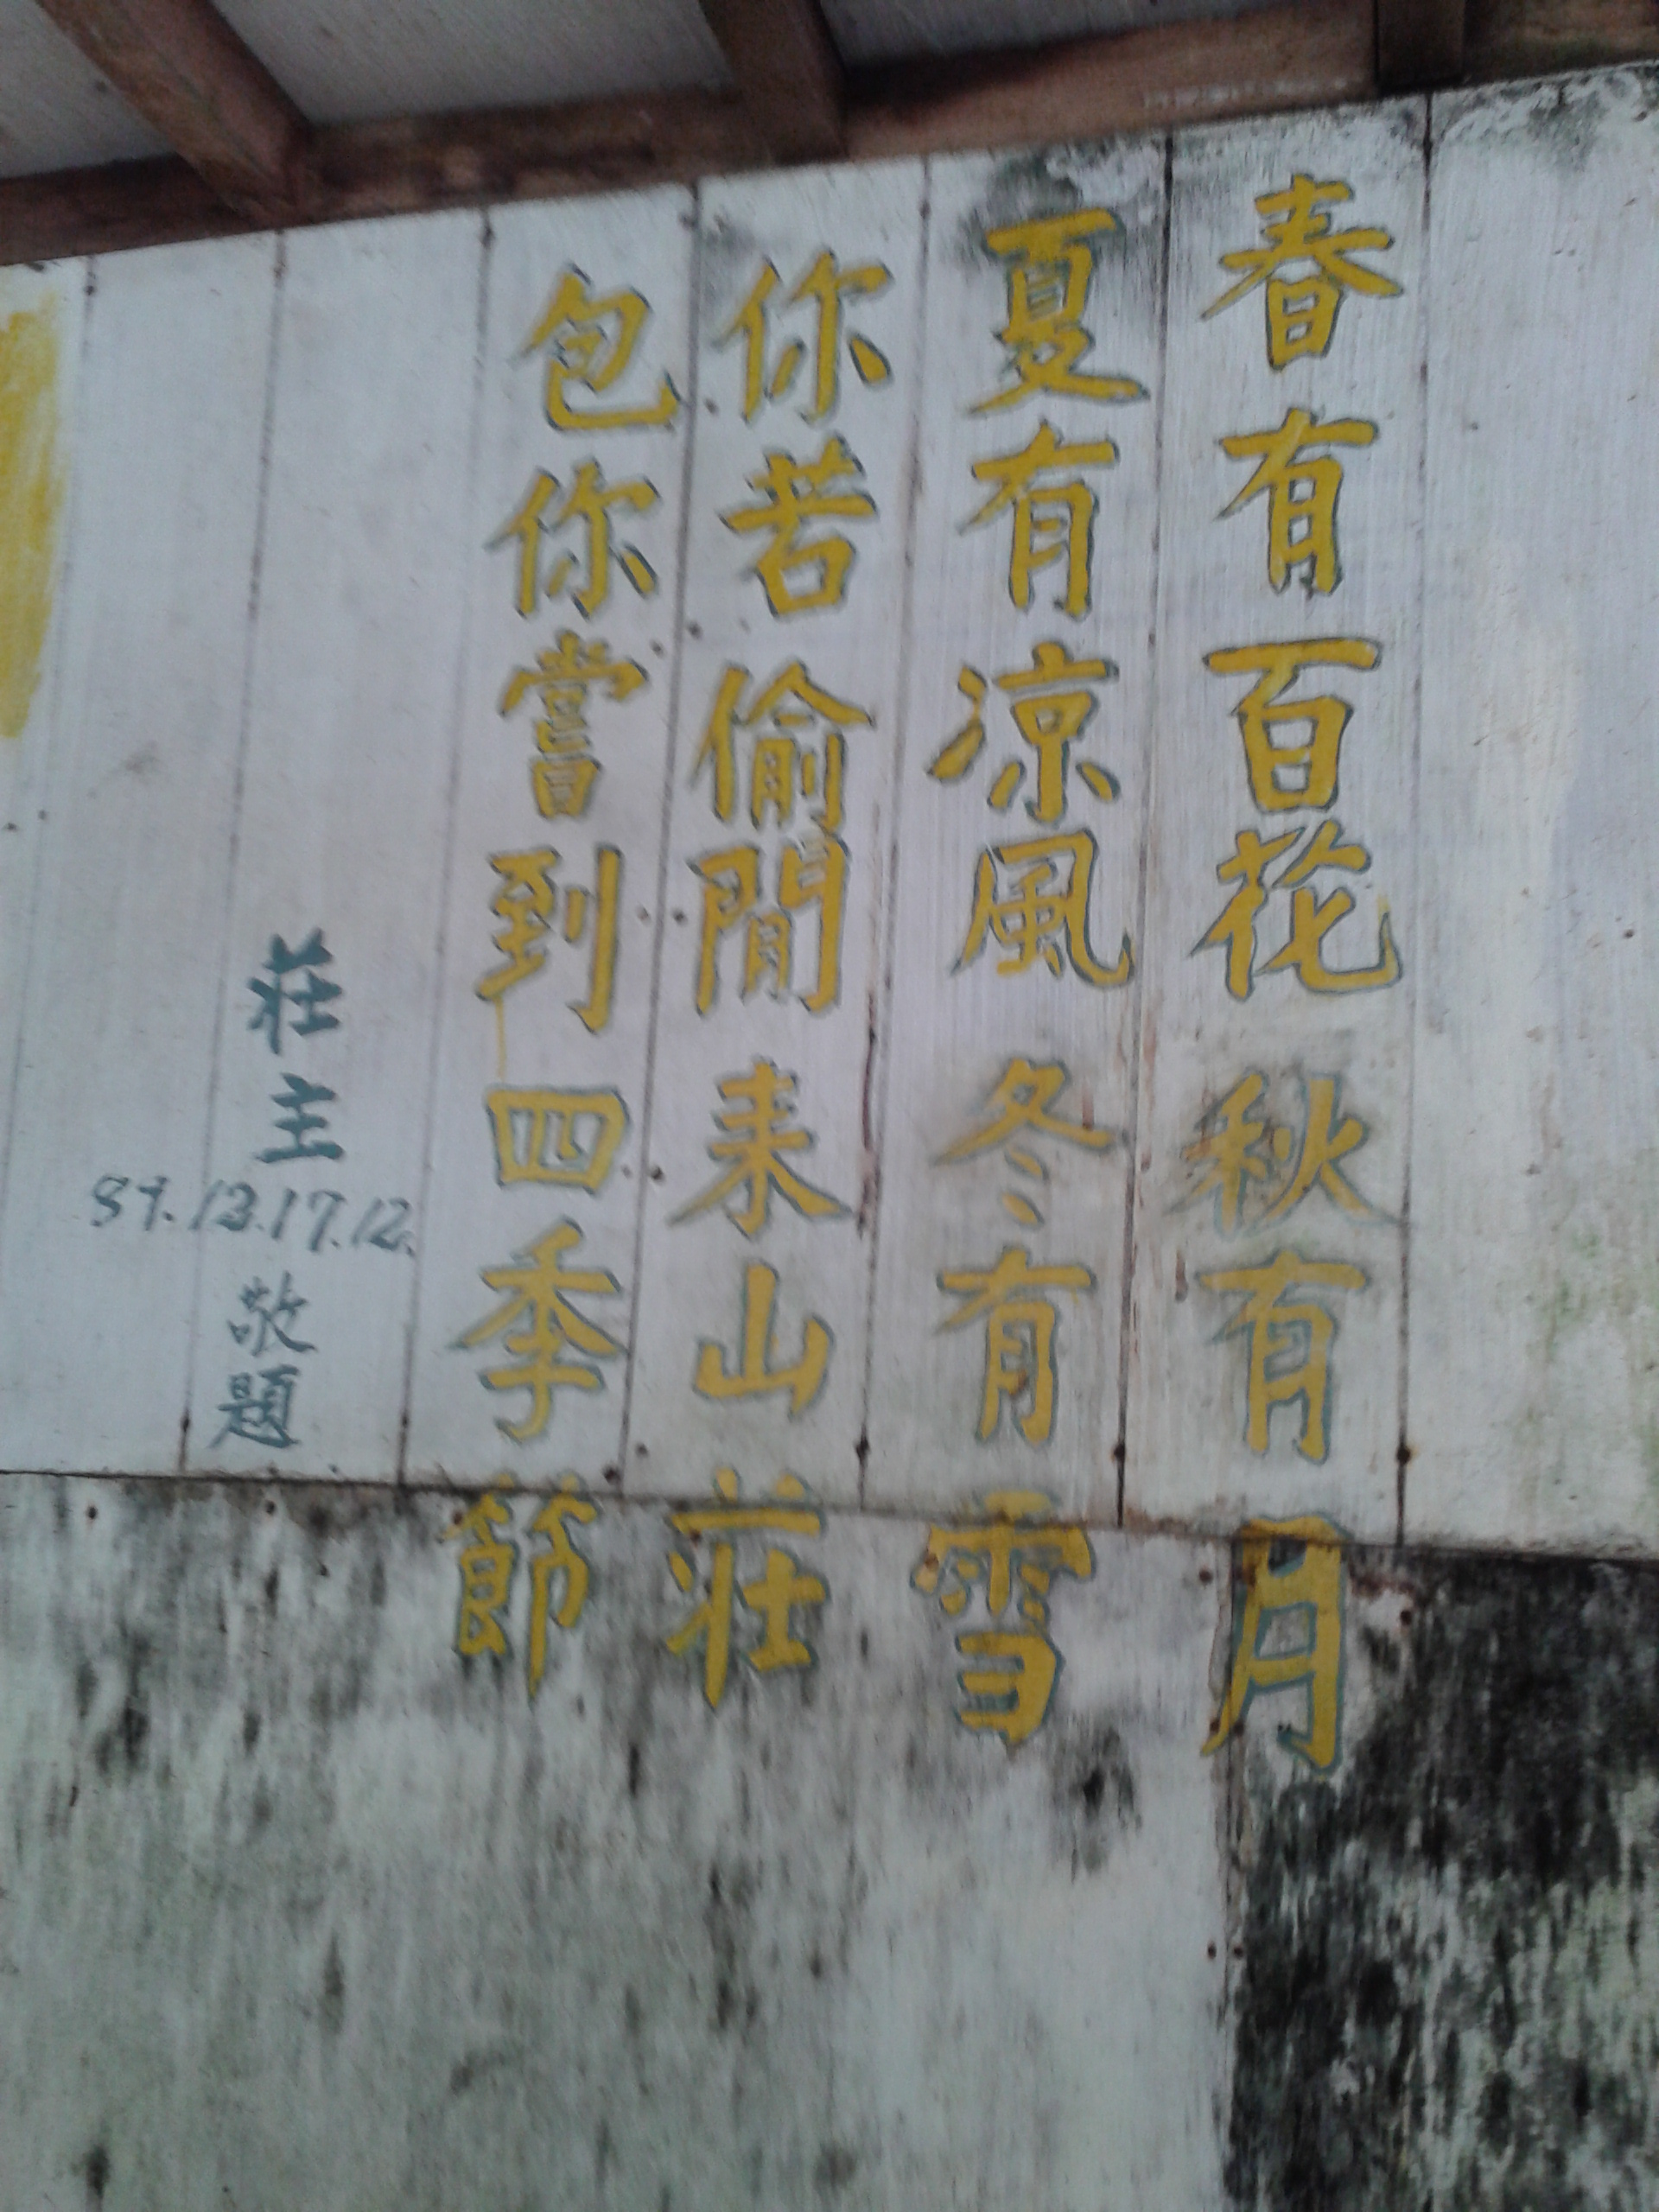 春有百花秋有月
夏有凉風冬有雪
你若偷閒来山莊
包你嘗到四季節
莊主
87.12.17.12.
敬題